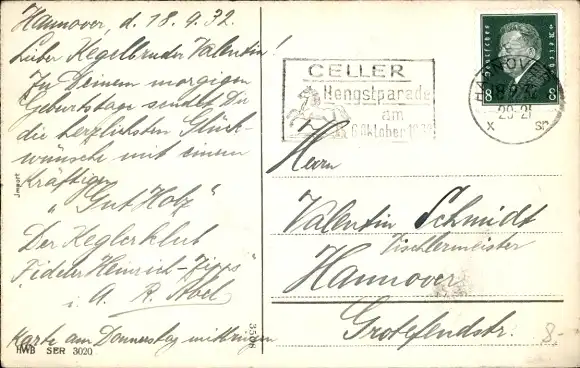 Hannover, d. 18.9.32.
Lieber Kegelbruder Valentin!
Zu Deinem morgigen
Geburtstage sendet Dir
die herzlichsten Glück-
wünsche mit einem
kräftigen
"Gut Holz"
Der Keglerklub
"Fideler Heinrich-
i. A. R. Abel
Karte am Donnerstag mitbringen
HWB SER 3020
Import
3508
CELLER
Hengstparade
am
6. Oktober 1932
HANNOVER
18.9.32
20-21
Deutsches Reich
8 8
Herrn
Valentin Schmidt
Tischlermeister
Hannover
Grotefendstr.
8.-